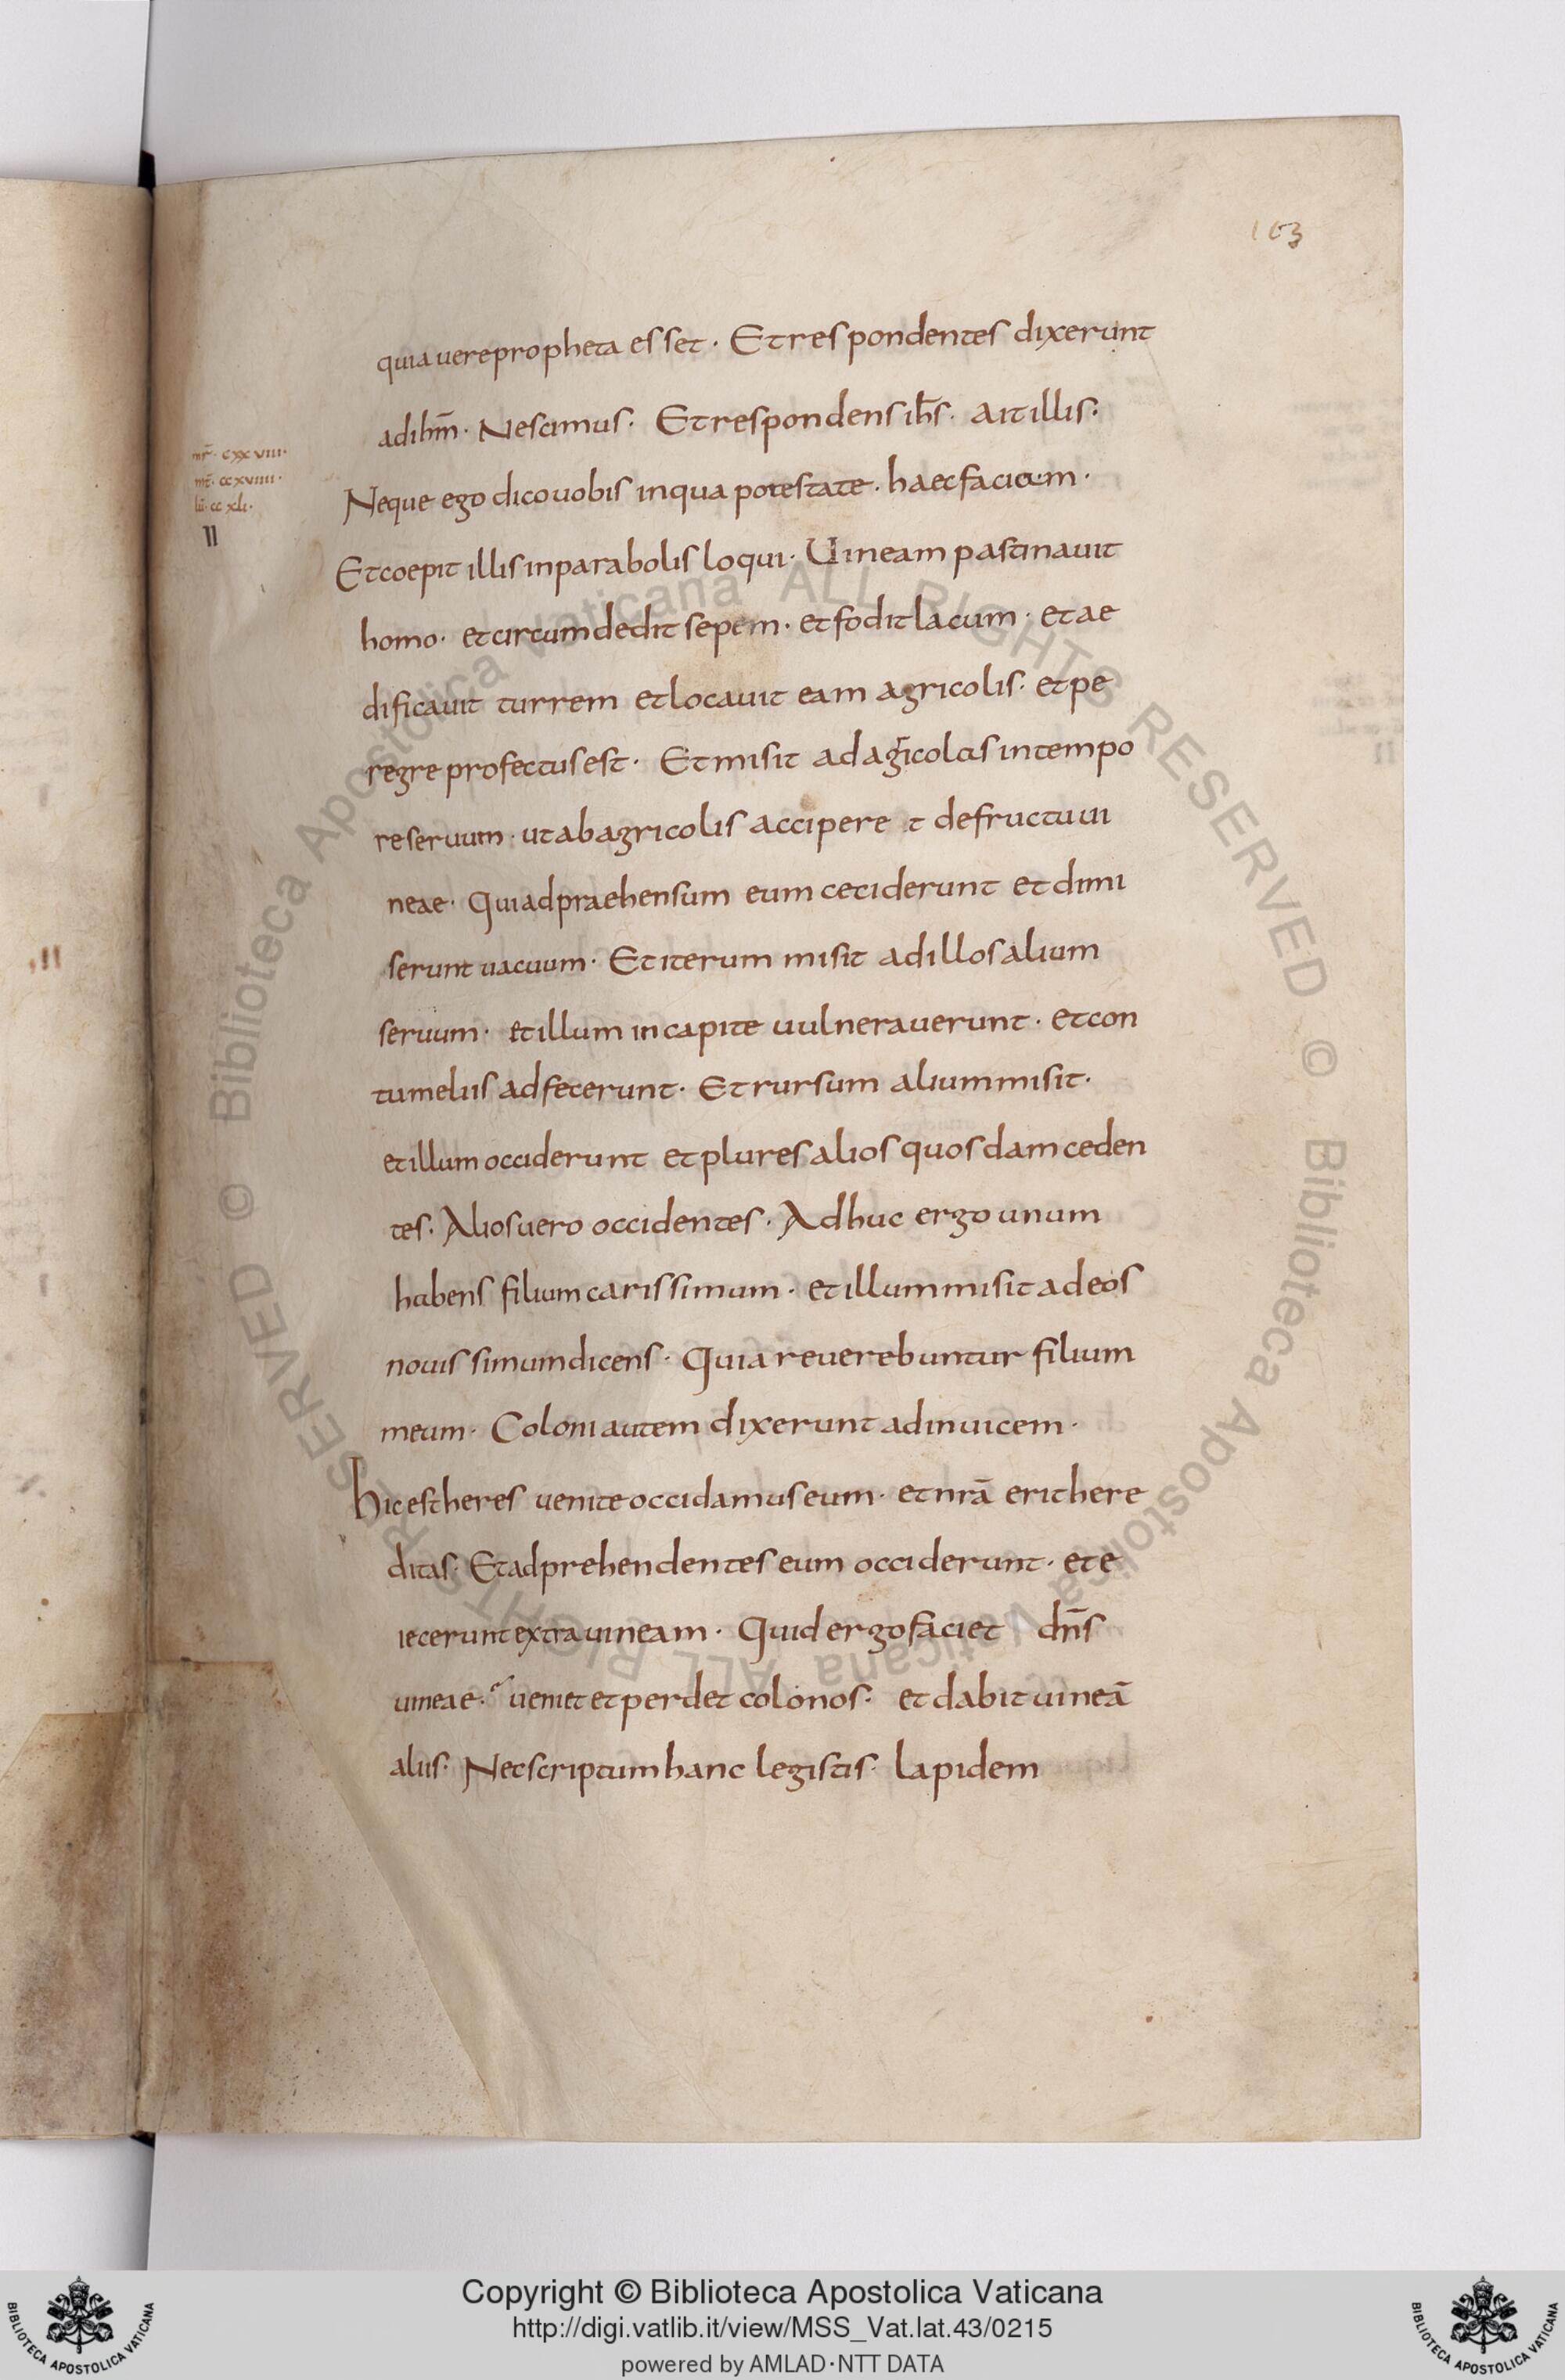 103
quia uere propheta esset · Et respondentes dixerunt
ad ihm̄ · Nescimus · Et respondens ih̄s · ait illis ·
mr̄ · cxxviii ·
mt̄ · ccxviiii ·
lū · ccxli ·
II
Neque ego dico uobis in qua potestate · haec faciam ·
Et coepit illis in parabolis loqui · Uineam pastinauit
homo · et circumdedit sepem · et fodit lacum · et ae
dificauit turrem et locauit eam agricolis · et pe
regre profectus est · Et misit ad agricolas in tempo
re seruum · ut ab agricolis acciperet de fructu ui
neae · Qui adpraehensum eum ceciderunt et dimi
serunt uacuum · Et iterum misit ad illos alium
seruum · et illum in capite uulnerauerunt · et con
tumeliis adfecerunt · Et rursum alium misit ·
et illum occiderunt et plures alios quosdam ceden
tes · Alios uero occidentes · Adhuc ergo unum
habens filium carissimum · et illum misit ad eos
nouissimum dicens · Quia reuerebuntur filium
meum · Coloni autem dixerunt ad inuicem ·
Hic est heres uenite occidamus eum · et nrā erit here
ditas · Et adprehendentes eum occiderunt · et e
iecerunt extra uineam · Quid ergo faciet dn̄s
uineae · ueniet et perdet colonos · et dabit uineā
aliis · Nec scripturam hanc legistis · lapidem
Copyright © Biblioteca Apostolica Vaticana
http://digi.vatlib.it/view/MSS_Vat.lat.43/0215
powered by AMLAD·NTT DATA
BIBLIOTECA APOSTOLICA VATICANA
BIBLIOTECA APOSTOLICA VATICANA
© Biblioteca Apostolica Vaticana ALL RIGHTS RESERVED
© Biblioteca Apostolica Vaticana ALL RIGHTS RESERVED